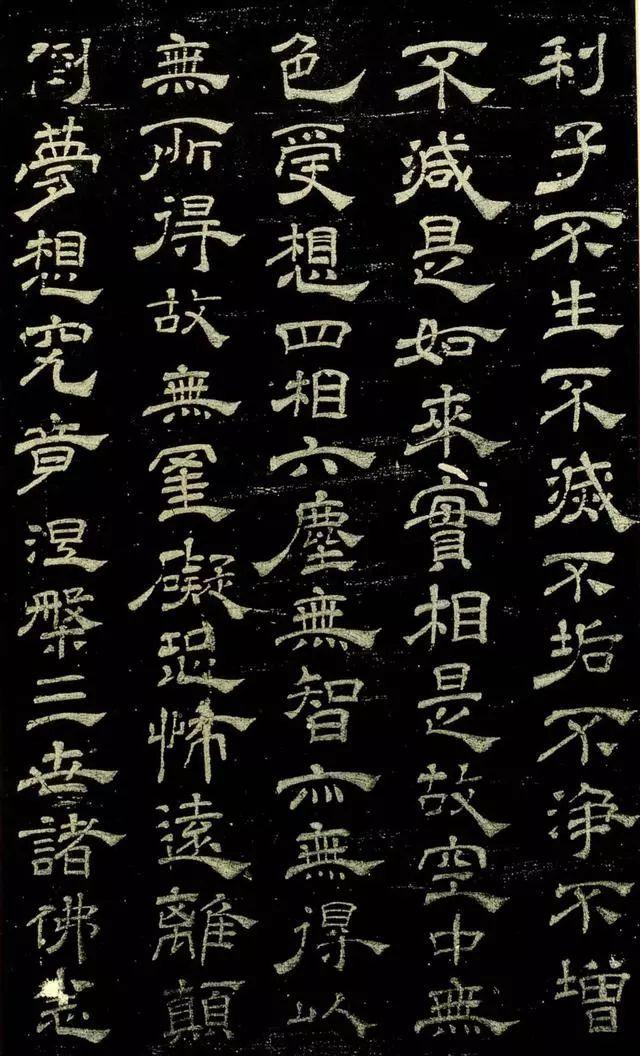 利子不生不滅不垢不淨不增
不減是如來實相是故空中無
色受想四相六塵無智亦無得以
無所得故無罣礙恐怖遠離顛
倒夢想究竟涅槃三世諸佛志